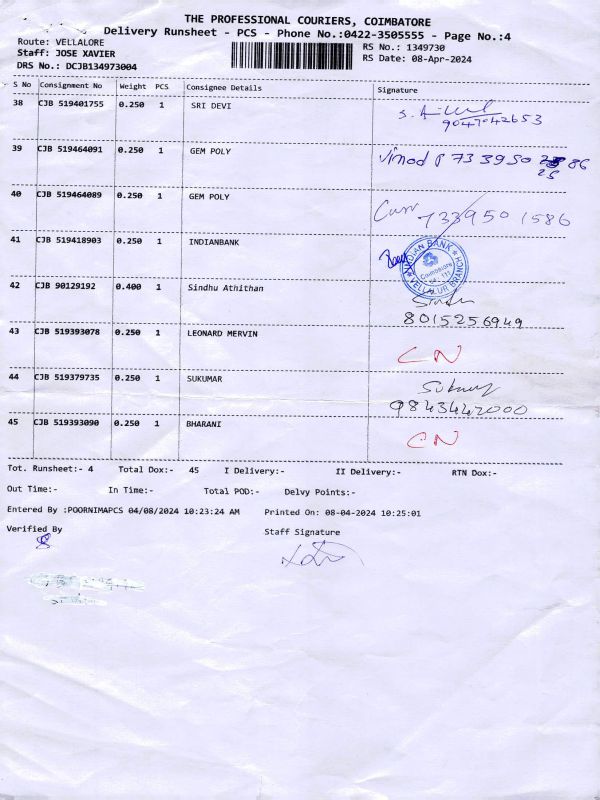 THE PROFESSIONAL COURIERS, COIMBATORE
Delivery Runsheet - PCS - Phone No.:0422-3505555 - Page No.:4
Route: VELLALORE
Staff: JOSE XAVIER
DRS No.: DCJB134973004
RS No.: 1349730
RS Date: 08-Apr-2024
S No Consignment No Weight PCS Consignee Details Signature
38 CJB 519401755 0.250 1 SRI DEVI
9047042653
39 CJB 519464091 0.250 1 GEM POLY Vinod P 733950 86
25
40 CJB 519464089 0.250 1 GEM POLY
7339501586
41 CJB 519418903 0.250 1 INDIANBANK
INDIAN BANK
Coimbatore
VELLALUR BRANCH
42 CJB 90129192 0.400 1 Sindhu Athithan
Sindhu
8015256949
43 CJB 519393078 0.250 1 LEONARD MERVIN
CN
44 CJB 519379735 0.250 1 SUKUMAR
9843442000
45 CJB 519393090 0.250 1 BHARANI
CN
Tot. Runsheet:- 4 Total Dox:- 45 I Delivery:- II Delivery:- RTN Dox:-
Out Time:- In Time:- Total POD:- Delvy Points:-
Entered By :POORNIMAPCS 04/08/2024 10:23:24 AM Printed On: 08-04-2024 10:25:01
Verified By Staff Signature